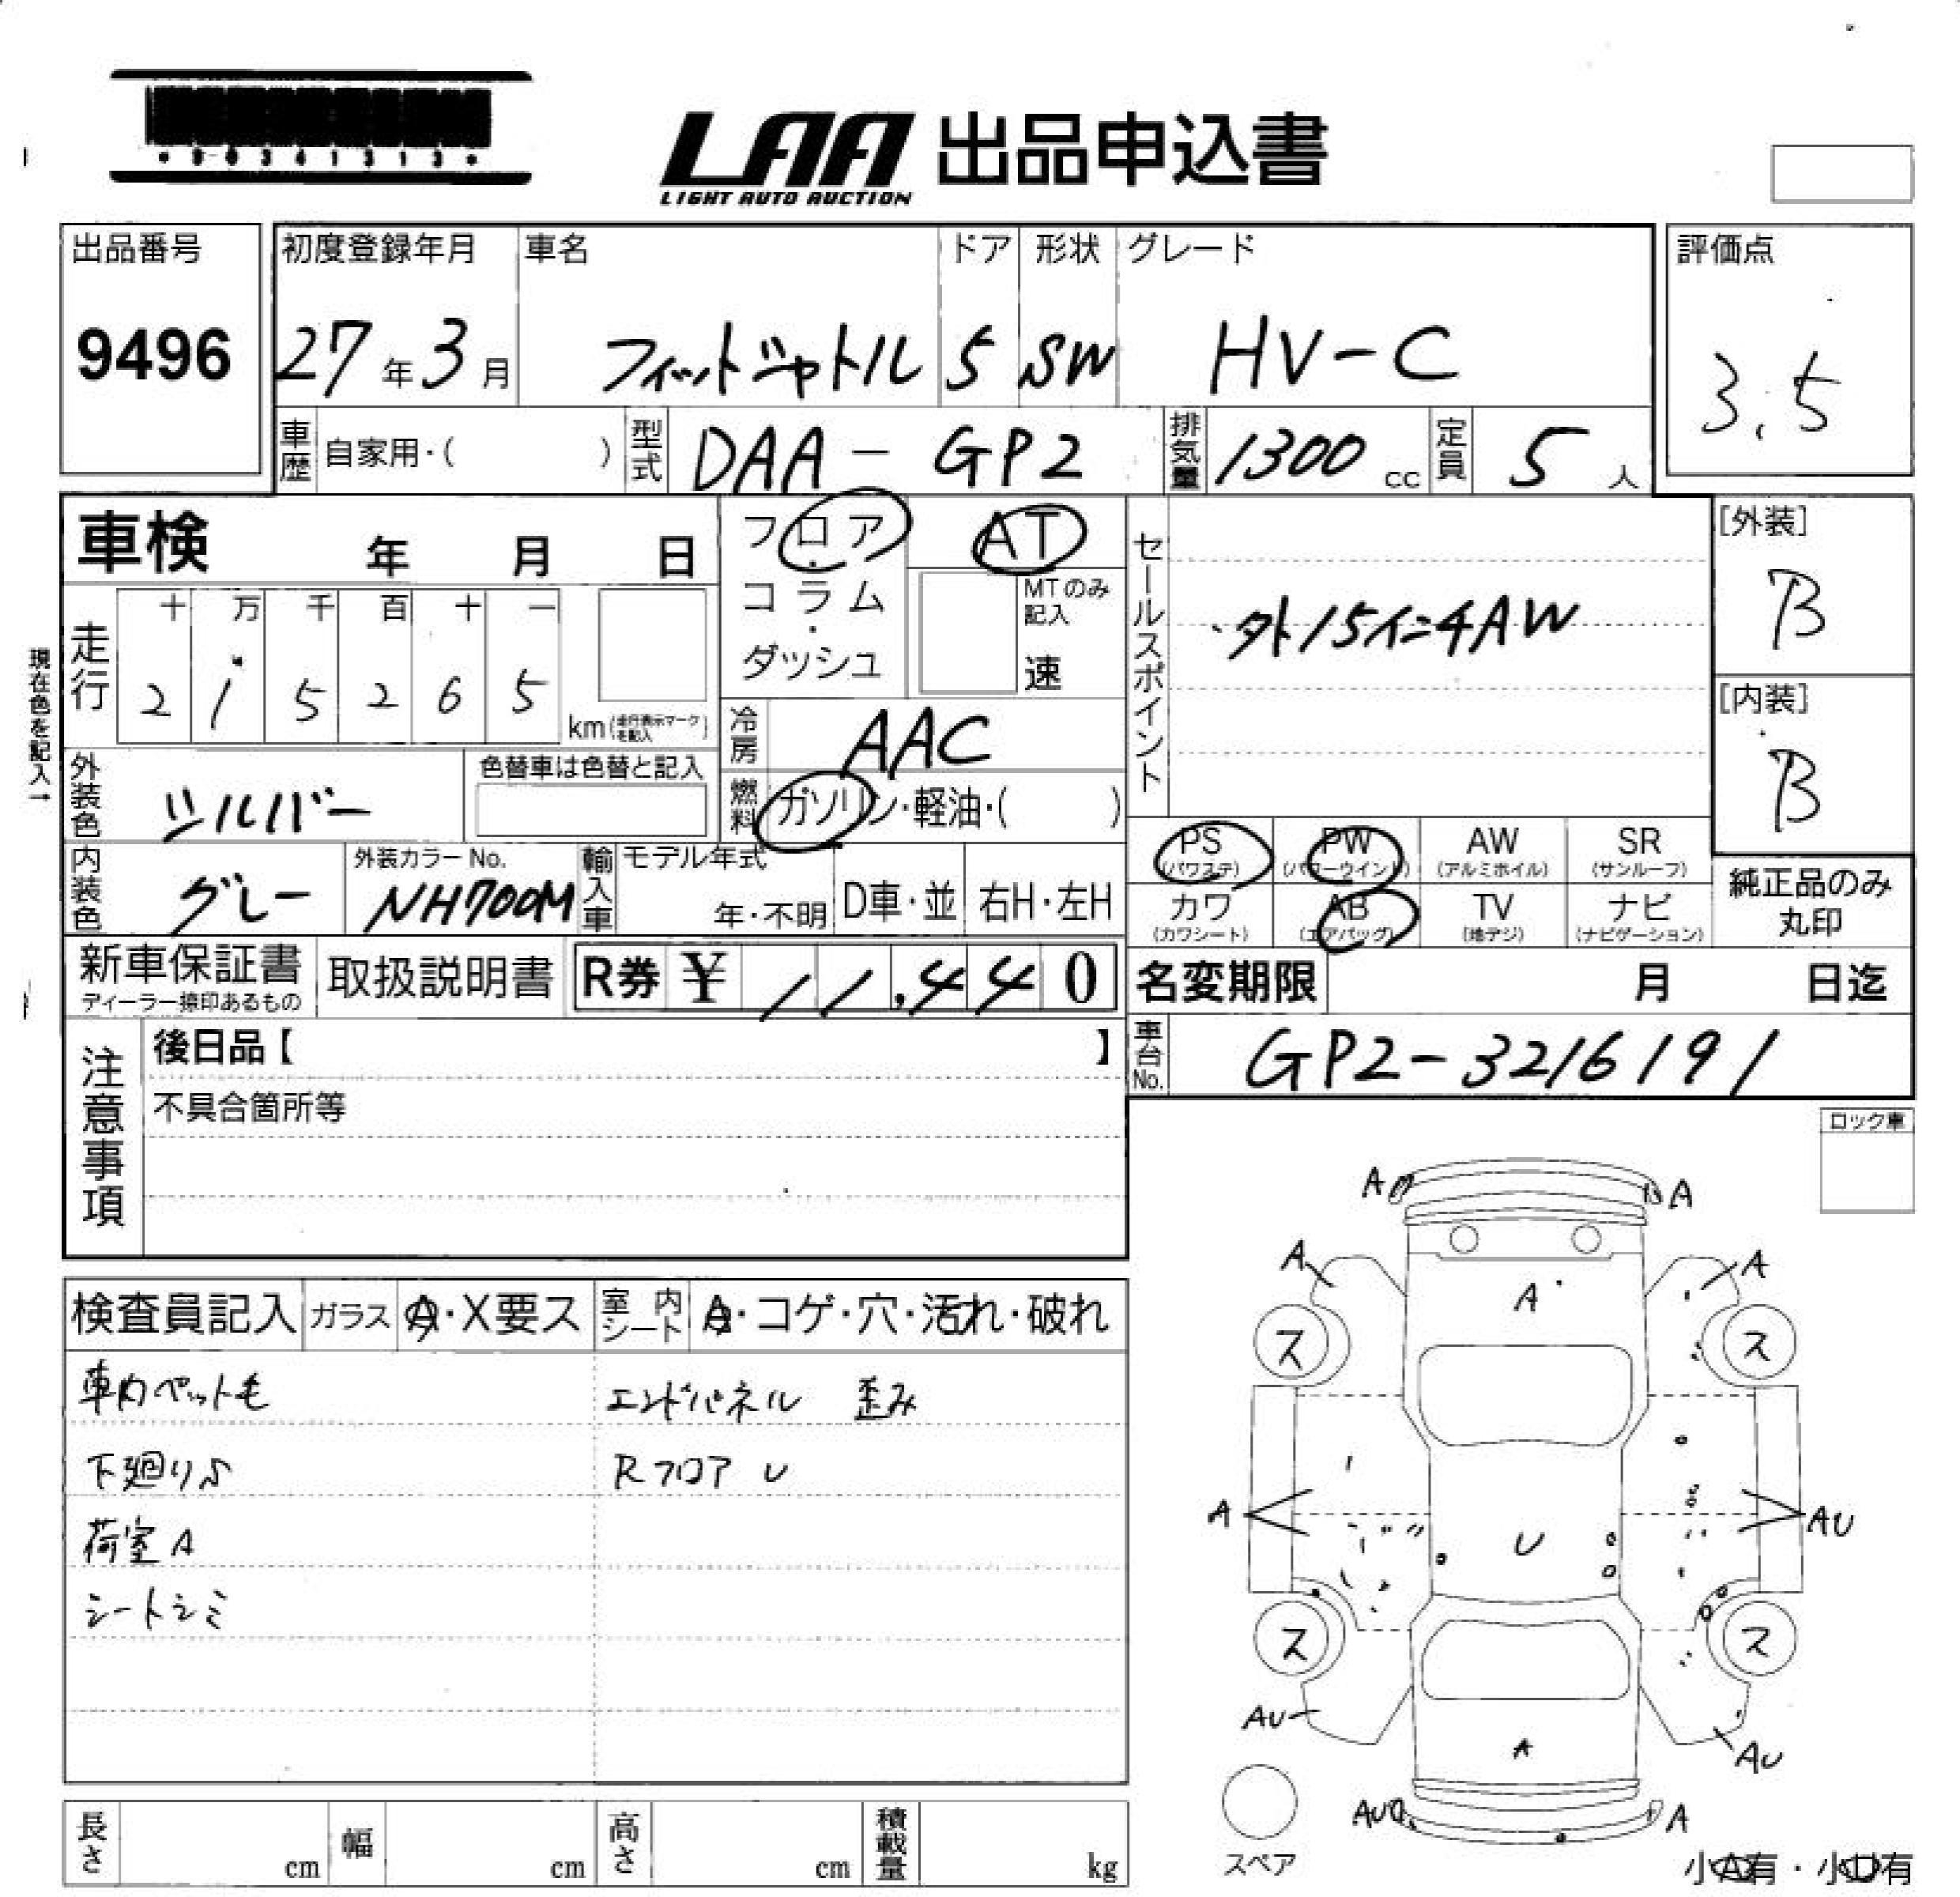 LAA 出品申込書
LIGHT AUTO AUCTION
出品番号
9496
初度登録年月
27年3月
車名
フィットシャトル
ドア
5
形状
SW
グレード
HV-C
評価点
3.5
車歴 自家用・( )
型式 DAA-GP2
排気量 1300 cc
定員 5 人
車検 年 月 日
フロア
コラム
ダッシュ
AT
MTのみ記入
速
セールスポイント
・外15インチAW
[外装]
B
[内装]
B
現在色を記入→
走行
十 万 千 百 十 一
2 1 5 2 6 5
km(走行表示マークを記入)
冷房 AAC
燃料 ガソリン・軽油・( )
外装色 シルバー
色替車は色替と記入
内装色 グレー
外装カラーNo.
NH700M
輸入車
モデル年式
年・不明
D車・並
右H・左H
PS (パワステ)
PW (パワーウインド)
AW (アルミホイル)
SR (サンルーフ)
カワ (カワシート)
AB (エアバッグ)
TV (地デジ)
ナビ (ナビゲーション)
純正品のみ
丸印
新車保証書
ディーラー捺印あるもの
取扱説明書
R券 ¥ 11,440
名変期限 月 日迄
車台No. GP2-3216191
注意事項
後日品【 】
不具合箇所等
ロック車
検査員記入
ガラス A・X要ス
室内シート A・コゲ・穴・汚れ・破れ
車内ペット毛
エンドパネル 歪み
下廻りS
Rフロア U
荷室A
シートシミ
A A
A A
A
ス ス
A AU
U
ス ス
AU AU
A
AU A
スペア
小A有・小U有
長さ cm
幅 cm
高さ cm
積載量 kg